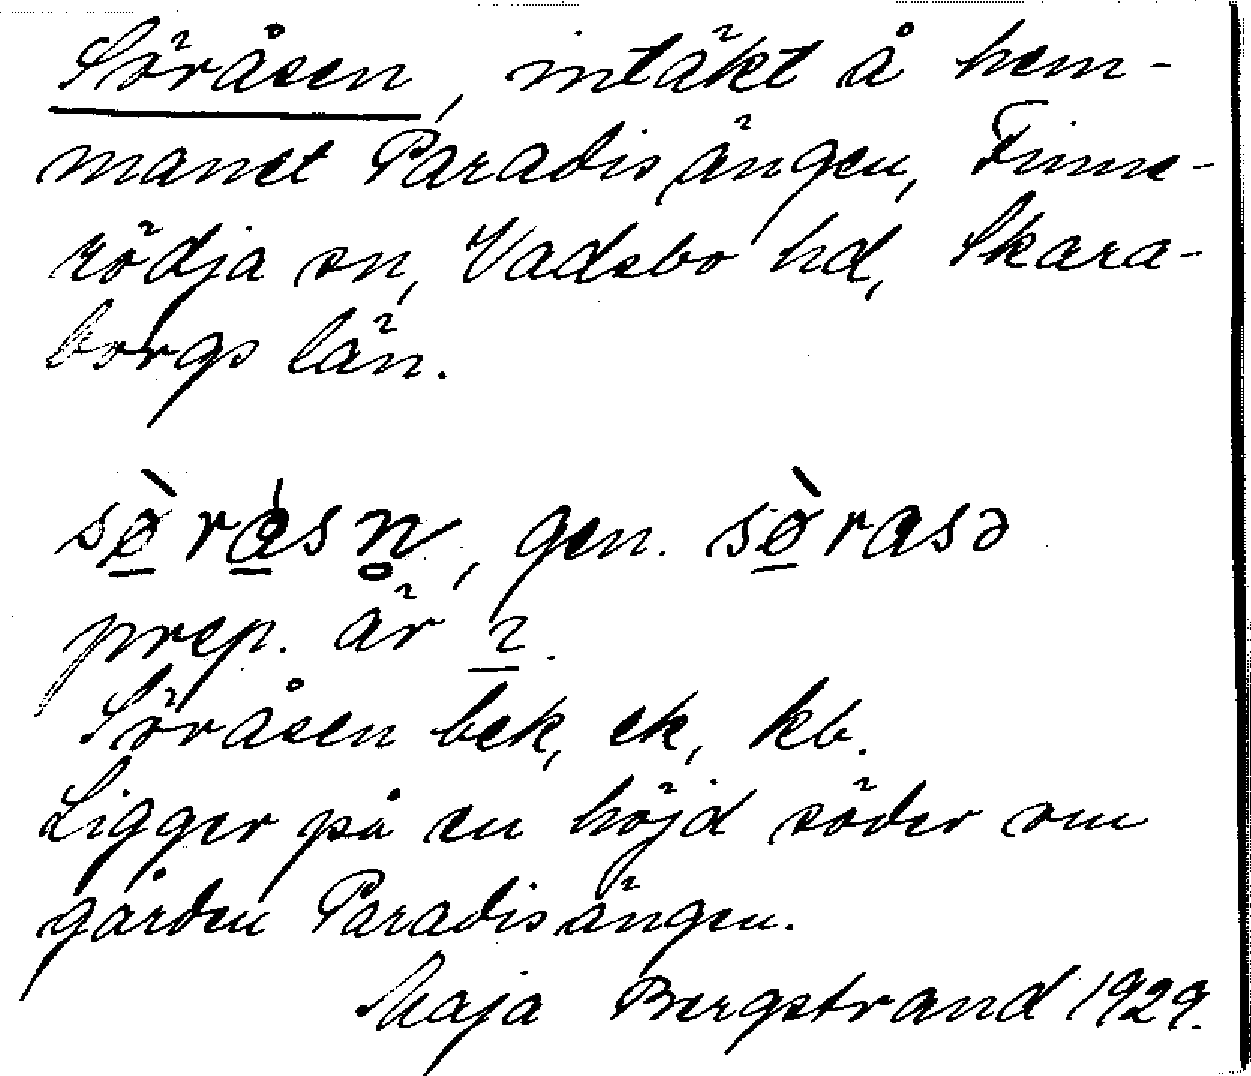 Söråsen, intäkt å hem-
manet Paradisängen, Finne-
rödja sn, Vadsbo hd, Skara-
borgs län.
sø̀råsn̥, gen. sø̀rasə
prep. är ɩ.
Söråsen bek, ek, kb.
Ligger på en höjd söder om
gården Paradisängen.
Maja Bergstrand 1929.